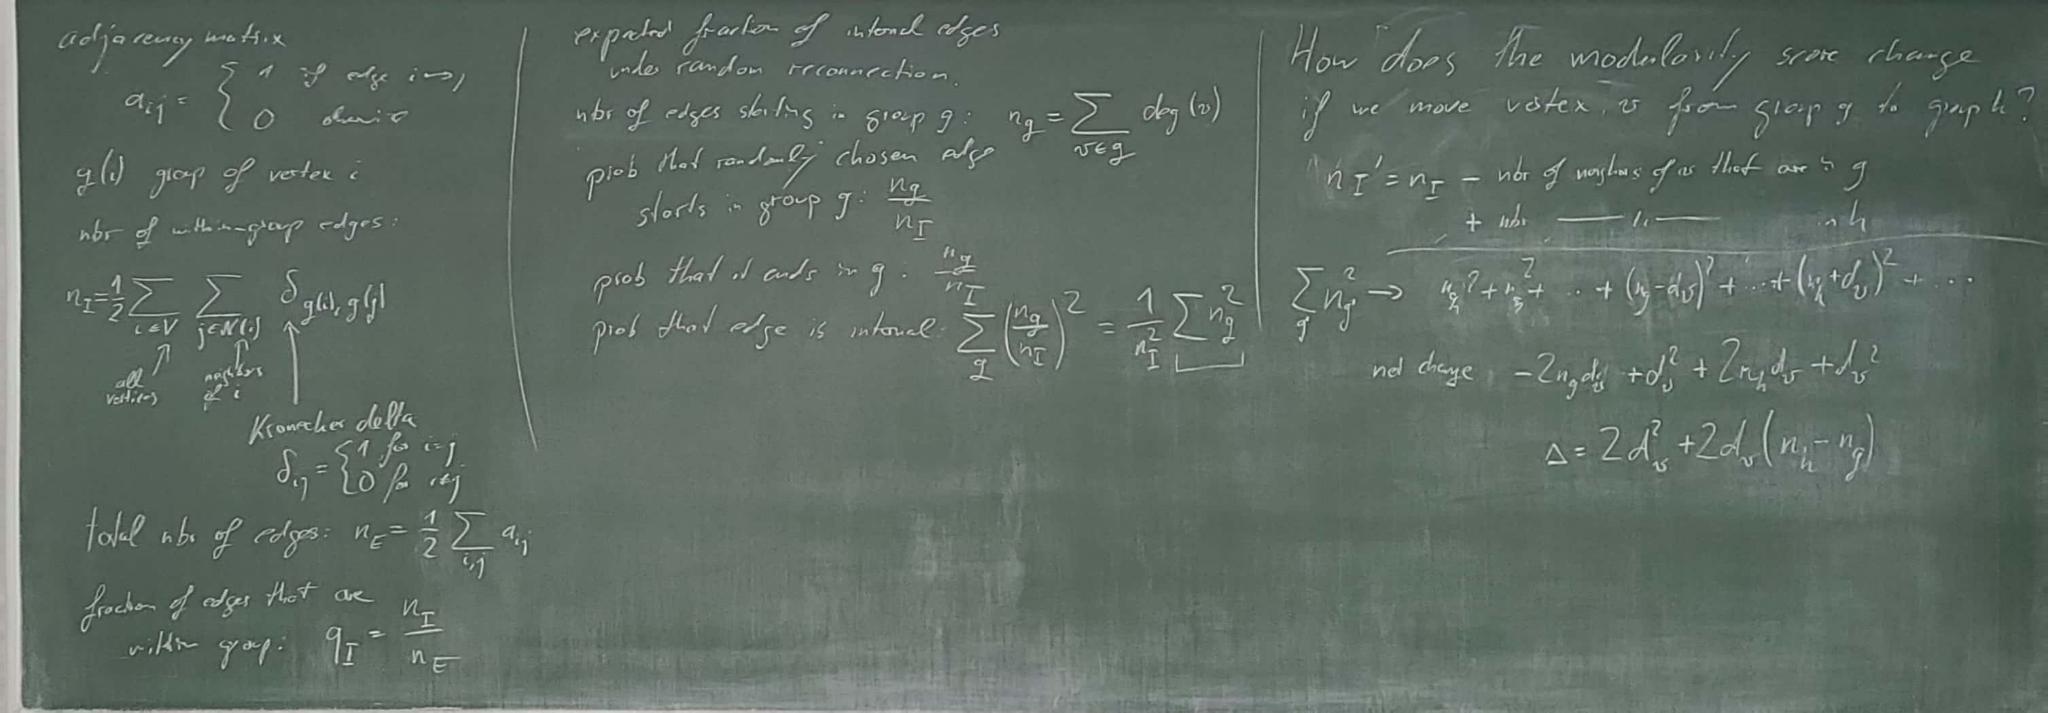 adjacency matrix
a_ij = { 1 if edge i↔j
0 otherwise
g(i) group of vertex i
nbr of within-group edges:
n_I = 1/2 ∑_{i∈V} ∑_{j∈N(i)} δ_{g(i), g(j)}
all vertices
neighbors of i
Kronecker delta
δ_ij = { 1 for i=j
0 for i≠j
total nbr of edges: n_E = 1/2 ∑_{i,j} a_ij
fraction of edges that are
within group: q_I = n_I / n_E
expected fraction of internal edges
under random reconnection.
nbr of edges starting in group g: n_g = ∑_{v∈g} deg(v)
prob that randomly chosen edge
starts in group g: n_g / n_I
prob that it ends in g: n_g / n_I
prob that edge is internal: ∑_g (n_g / n_I)^2 = 1/n_I^2 ∑ n_g^2
How does the modularity score change
if we move vertex v from group g to group h?
n_I' = n_I − nbr of neighbors of v that are in g
+ nbr —— 〃 —— in h
∑_g n_g^2 → + ... + (n_g − d_v)^2 + ... + (n_h + d_v)^2 + ...
net change −2n_g d_v + d_v^2 + 2n_h d_v + d_v^2
Δ = 2d_v^2 + 2d_v (n_h − n_g)